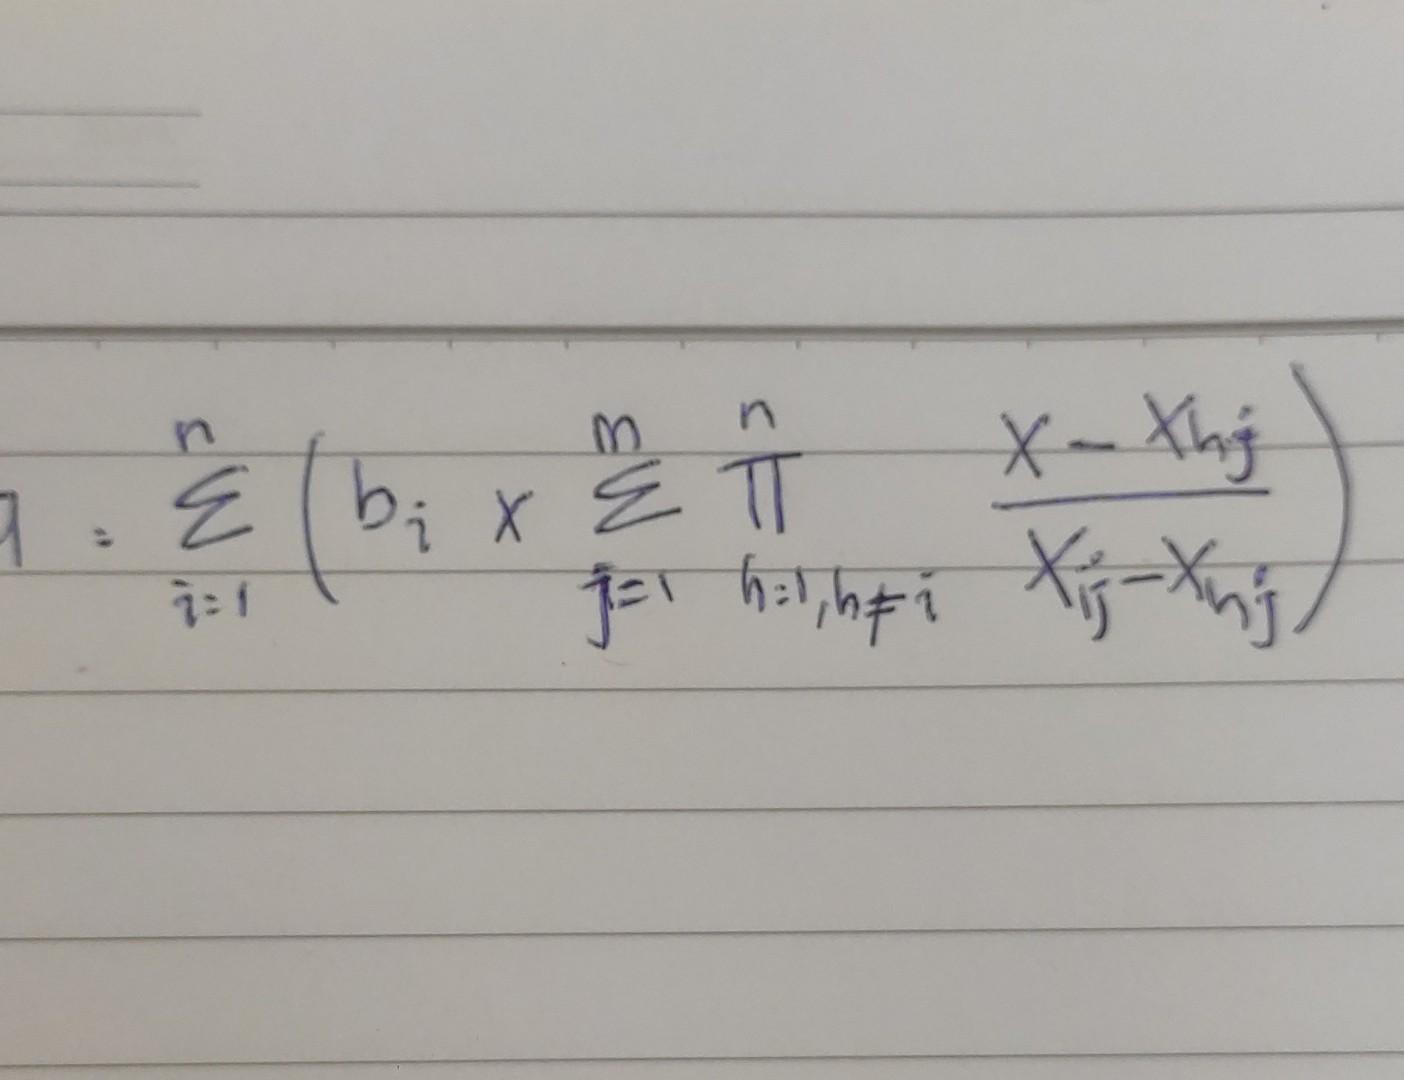 = \sum_{i=1}^{n} \left( b_i \times \sum_{j=1}^{m} \prod_{h=1, h \neq i}^{n} \frac{x - x_{hj}}{x_{ij} - x_{hj}} \right)